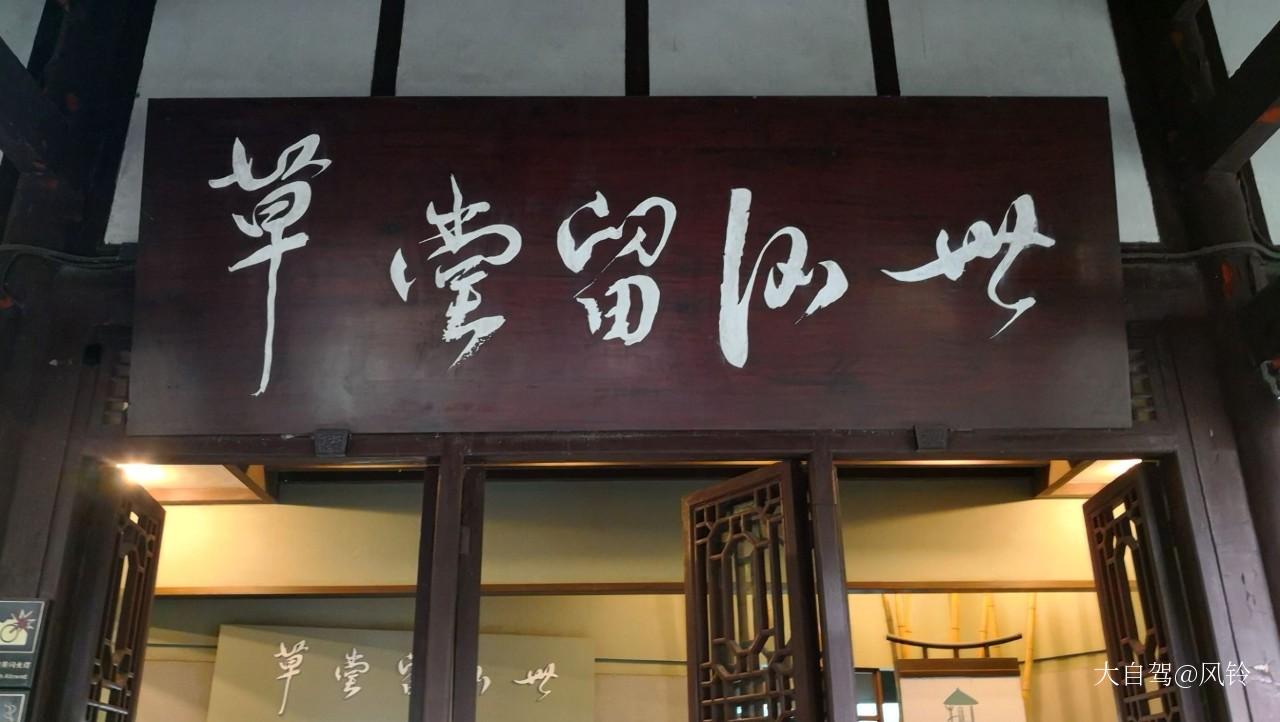 草堂留後世
草堂留後世
大自驾@风铃